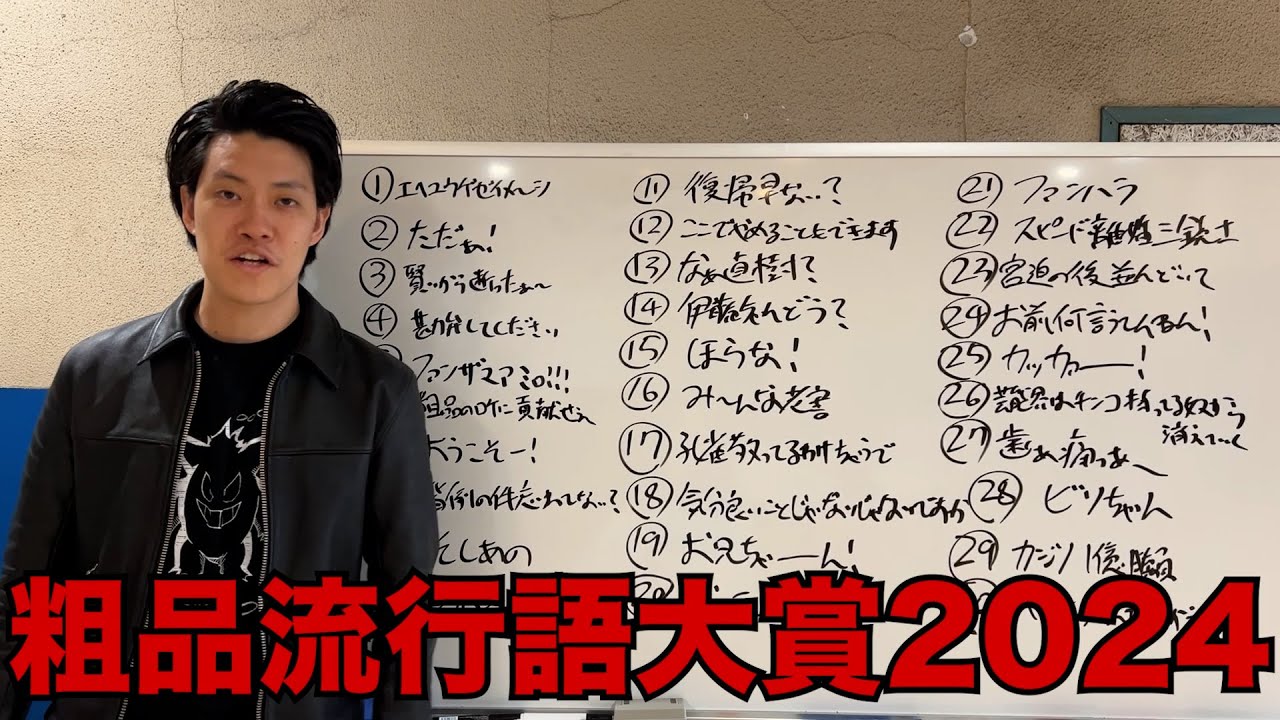 ① エヘユウゲゼイメ〜ジ
② ただぁ!
③ 賢いから避けたぁ〜
④ 勘弁してください
ファンザマアミロ!!!
粗品のロケに貢献せえ
ようこそー!
当て逃げの件忘れてない?
そしあの
⑪ 復帰早ない?
⑫ ここでやめることもできます
⑬ なぁ直樹?
⑭ 伊藤さんどう?
⑮ ほらな!
⑯ み〜んな老害
⑰ 孔雀散ってるわけちゃうで
⑱ 気分良いことじゃないじゃないですか
⑲ お兄ちゃーーん!
⑳
㉑ ファンハラ
㉒ スピード離婚三銃士
㉓ 宮迫の後並んどいて
㉔ お前何言うてんねん!
㉕ カッカァー!
㉖ 芸能界はキンコ持ってる奴から
消えていく
㉗ 歯ぁ痛っあ〜
㉘ ビリちゃん
㉙ カジノ1億勝負
粗品流行語大賞2024